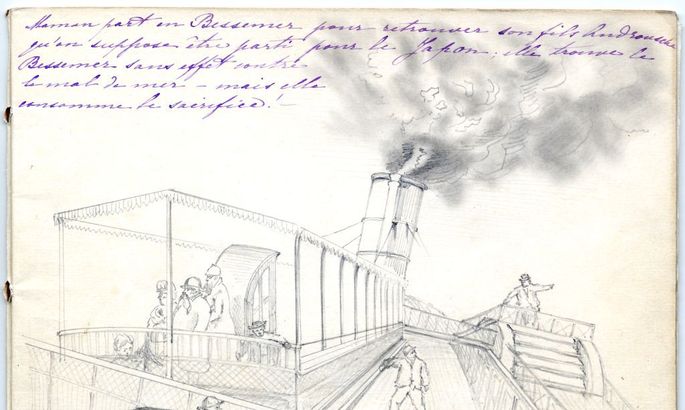 Maman part en Bessemer pour retrouver son fils
qu'on suppose être parti pour le Japon; elle trouve le
Bessemer sans effet contre
le mal de mer – mais elle
consomme le sacrifice! –